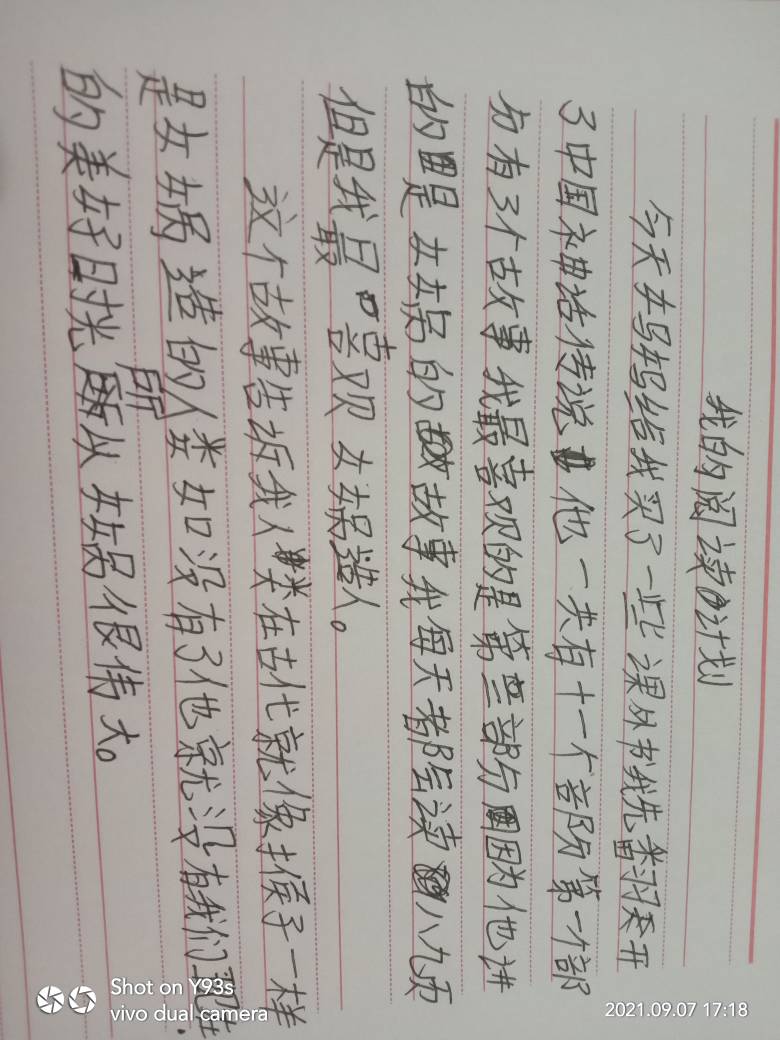 我的阅读计划
今天妈妈给我买了一些课外书我先翻开
了中国神话传说他一共有十一个部分第一个部
分有3个故事我最喜欢的是第三部分因为他讲
的是女娲的故事我每天都会读八九页
但是我最喜欢女娲造人。
这个故事告诉我人类在古代就像猴子一样
是女娲造的人类如没有了他就没有我们
的美好时光所以女娲很伟大。
Shot on Y93s
vivo dual camera
2021.09.07 17:18